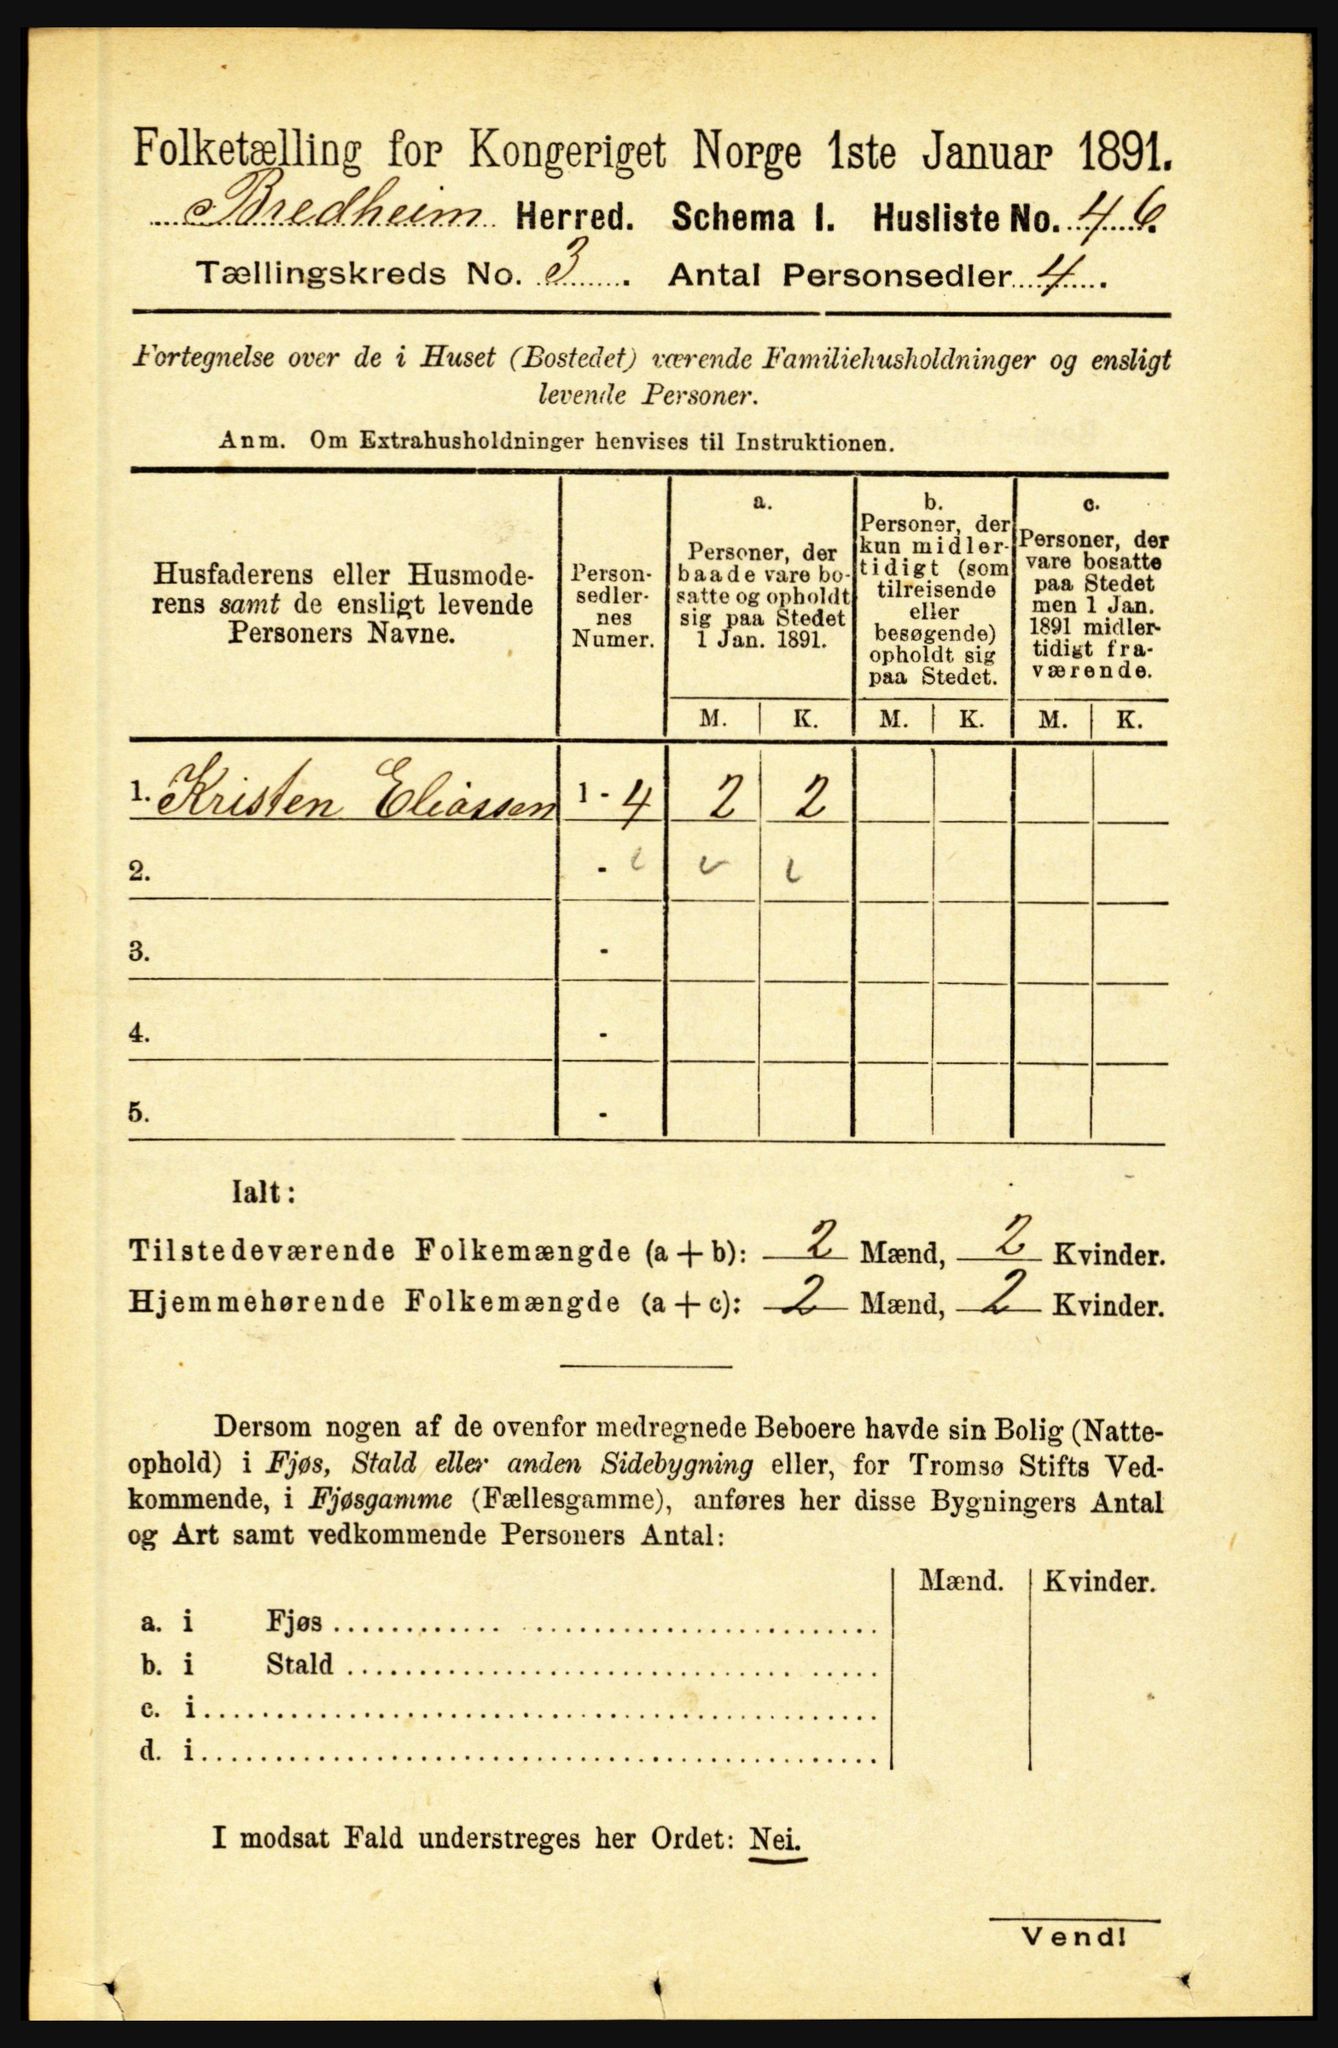 Folketælling for Kongeriget Norge 1ste Januar 1891.
Bredheim Herred. Schema I. Husliste No. 46.
Tællingskreds No. 3. Antal Personsedler 4.
Fortegnelse over de i Huset (Bostedet) værende Familiehusholdninger og ensligt
levende Personer.
Anm. Om Extrahusholdninger henvises til Instruktionen.
Husfaderens eller Husmode-
rens samt de ensligt levende
Personers Navne.
Person-
sedler-
nes
Numer.
a.
Personer, der
baade vare bo-
satte og opholdt
sig paa Stedet
1 Jan. 1891.
b.
Personer, der
kun midler-
tidigt (som
tilreisende
eller
besøgende)
opholdt sig
paa Stedet.
c.
Personer, der
vare bosatte
paa Stedet
men 1 Jan.
1891 midler-
tidigt fra-
værende.
M. K. M. K. M. K.
1. Kristen Eliassen 1 - 4 2 2
2. -
3. -
4. -
5. -
Ialt:
Tilstedeværende Folkemængde (a + b): 2 Mænd, 2 Kvinder.
Hjemmehørende Folkemængde (a + c): 2 Mænd, 2 Kvinder.
Dersom nogen af de ovenfor medregnede Beboere havde sin Bolig (Natte-
ophold) i Fjøs, Stald eller anden Sidebygning eller, for Tromsø Stifts Ved-
kommende, i Fjøsgamme (Fællesgamme), anføres her disse Bygningers Antal
og Art samt vedkommende Personers Antal:
Mænd. Kvinder.
a. i Fjøs
b. i Stald
c. i
d. i
I modsat Fald understreges her Ordet: Nei.
Vend!